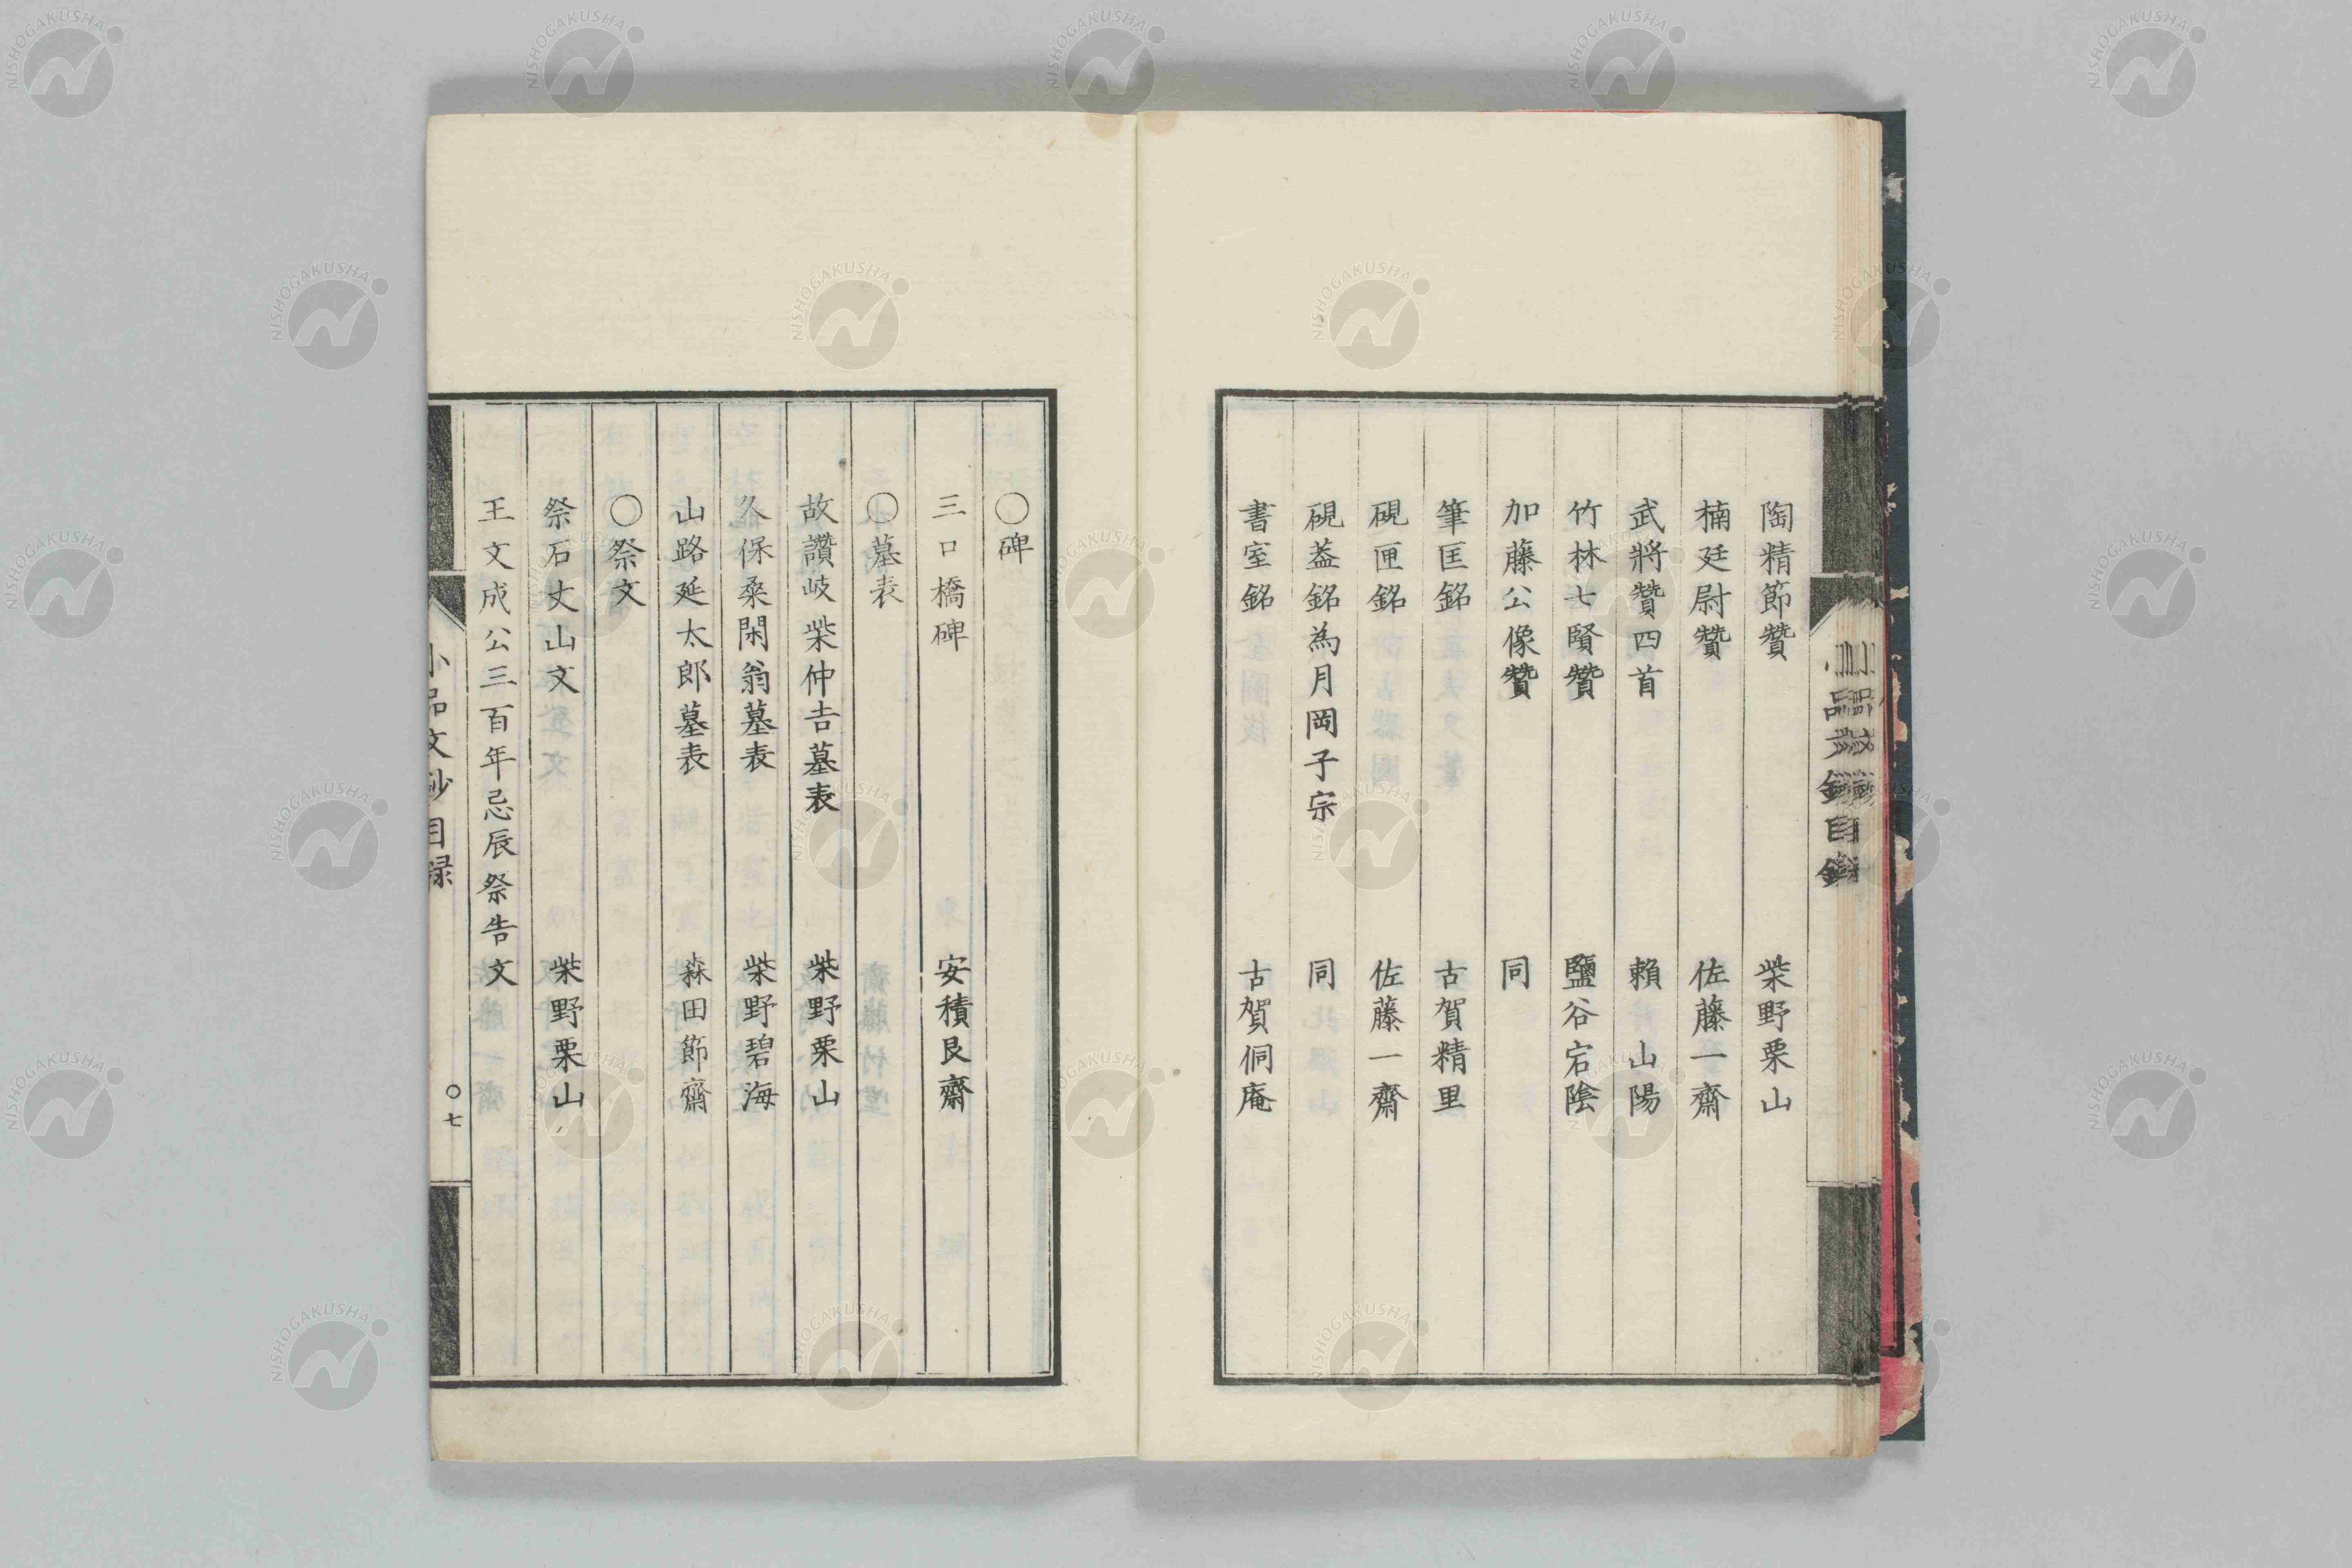 陶精節贊　柴野栗山
楠廷尉贊　佐藤一齋
武將贊四首　賴山陽
竹林七賢贊　鹽谷宕陰
加藤公像贊　同
筆匡銘　古賀精里
硯匣銘　佐藤一齋
硯葢銘為月岡子宗　同
書室銘　古賀侗庵
〇碑
三口橋碑　安積艮齋
〇墓表
故讚岐柴仲吉墓表　柴野栗山
久保桑閑翁墓表　柴野碧海
山路延太郎墓表　森田節齋
〇祭文
祭石丈山文　柴野栗山
王文成公三百年忌辰祭告文
小品文鈔目録　〇七
NISHOGAKUSHA